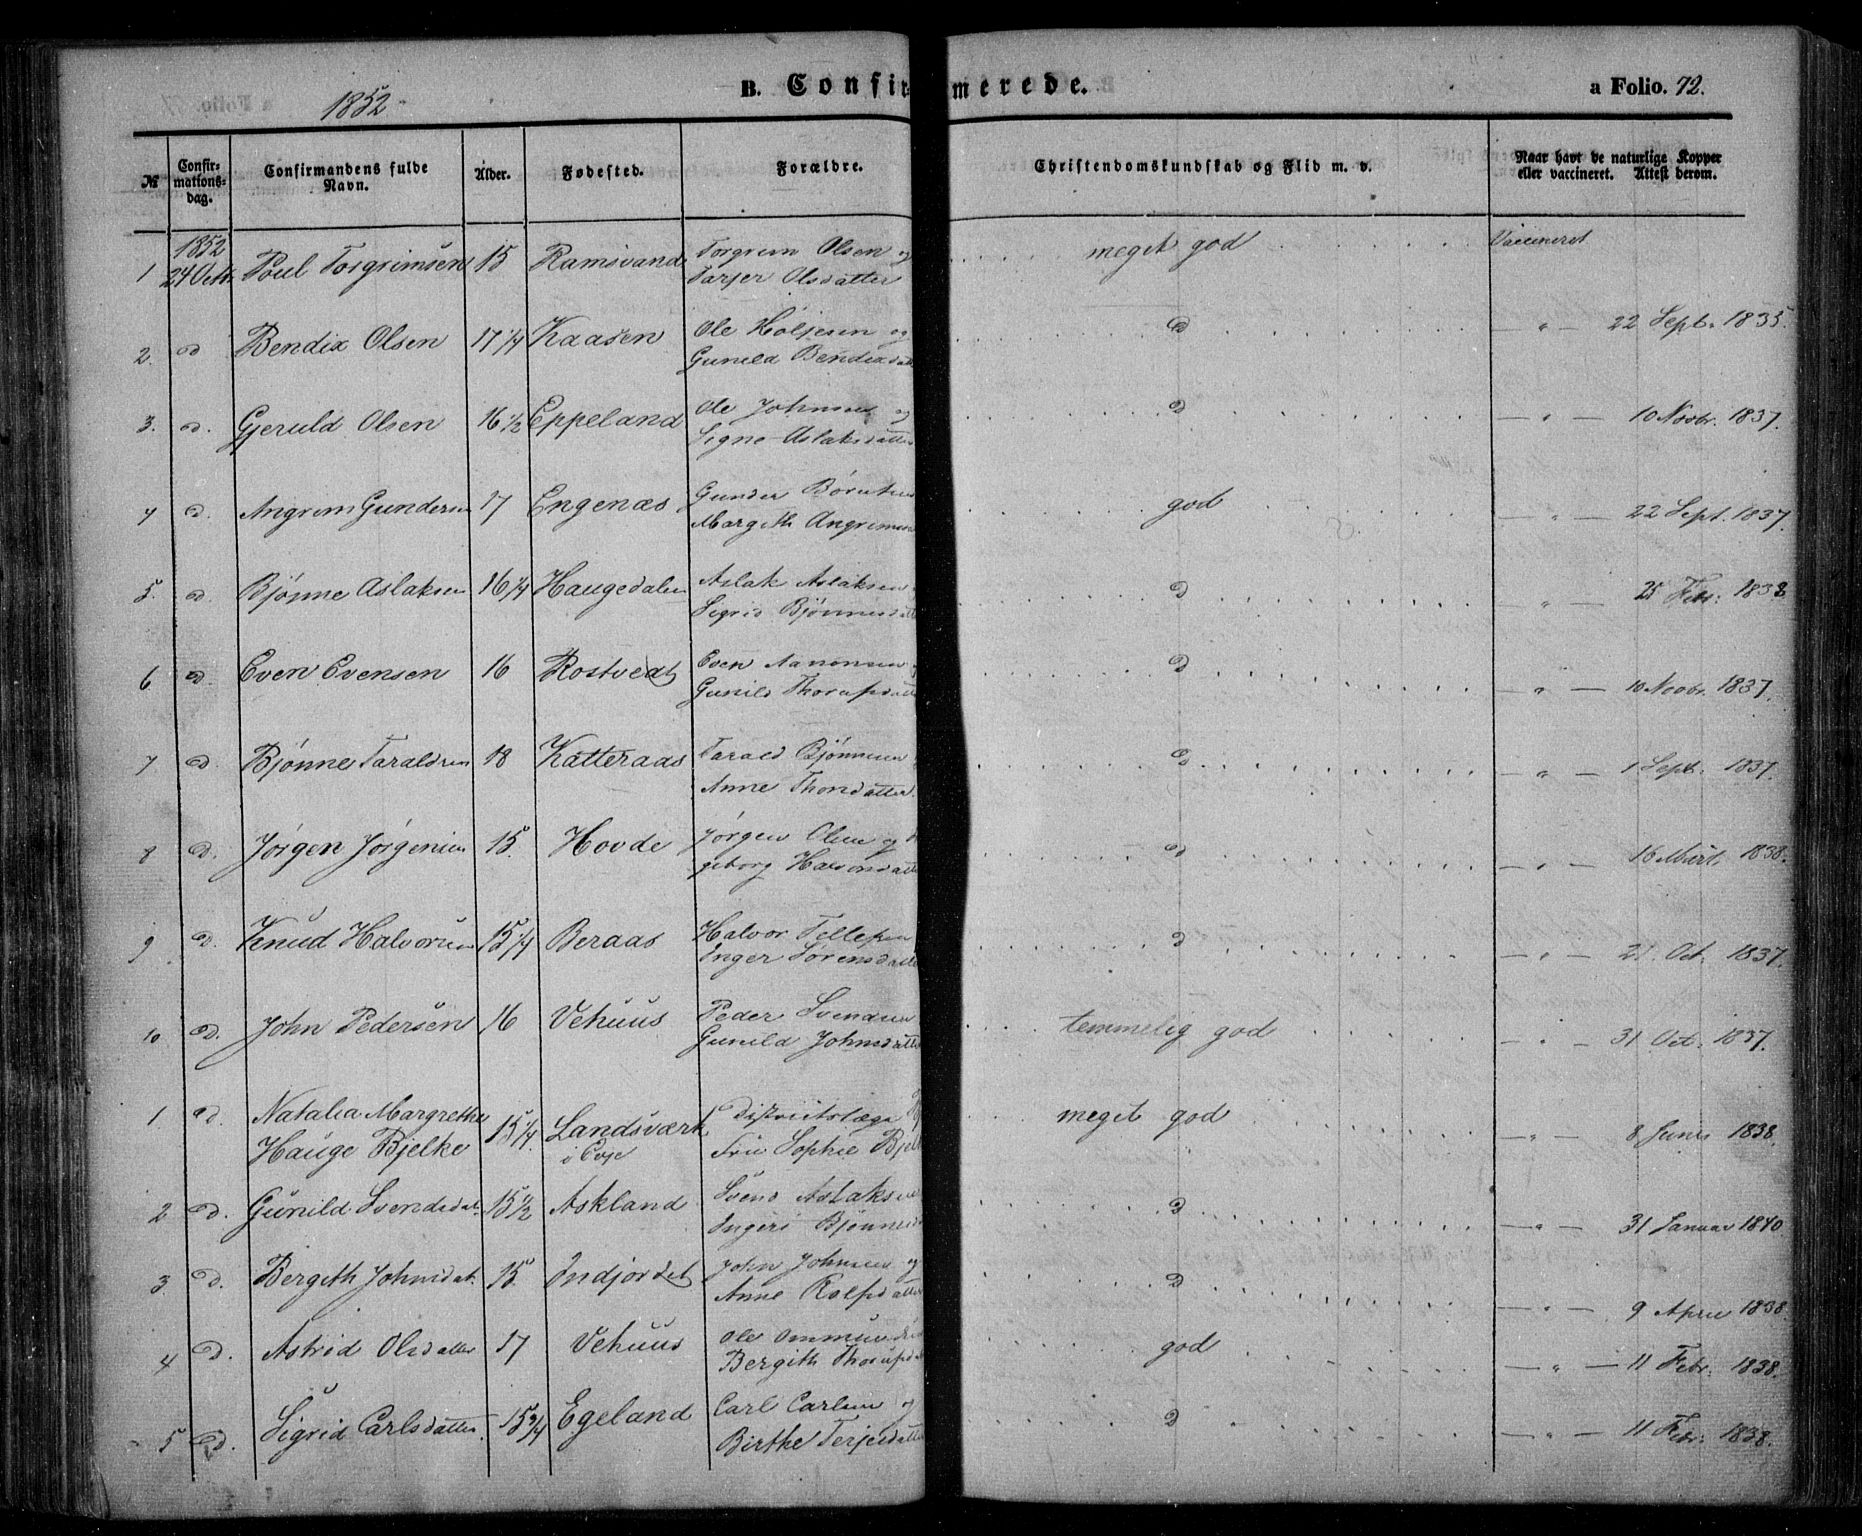 1852
B. Confirmerede.
a Folio. 72.
№ Confirmationsdag. Confirmandens fulde Navn. Alder. Fødested. Forældre. Christendomskundskab og Flid m. v. Naar havt de naturlige Kopper eller vaccineret. Attest derom.
1 1852 24 Octr. Poul Torgrimsen 15 Ramsvand Torgrim Olsen og Tarjer Olsdatter meget god Vaccineret
2. D Bendix Olsen 17 1/4 Kaasen Ole Holjesen og Gunild Bendixdatt D — " — 22 Sept. 1835.
3. D. Gjeruld Olsen 16 1/2 Eppeland Ole Johnsen og Signe Aslaksdatter D — " — 10 Novbr. 1837.
4 D. Angrim Gundersen 17 Engenæs Gunder Margith god — " — 22 Sept. 1837.
5. D. Bjønne Aslaksen 16 1/4 Haugedalen Aslak Aslaksen Sigrid Bjønnesdatt D " — 25 Febr: 1838
6 D. Even Evensen 16 Rostvedt Even Aanonsen Gunild D — " — 10 Novbr. 1837.
7 D. Bjønne Taraldsen 18 Katteraas Tarald Bjønnesen Anne Thorsdatter D — " — 1 Sept. 1837.
8 D. Jørgen Jørgensen 15. Hovde Jørgen Olsen og geborg Halvorsdatt D — " — 16 Mart. 1838.
9 D. Knud Halvorsen 15 1/4 Beraas Halvor Tellefsen Inger Sørensdatte D — " — 21 Oct. 1837.
10 D. John Pedersen 16 Vehuus Peder Svendsen Gunild Johnsdatte temmelig god — " — 31 Oct. 1837.
1. D. Natalia Margrethe Hauge Bjelke 15 1/4. Landsværk i Evje Distriktslæge Fru Sophie Bjel meget god — " — 8 Juni 1838.
2 D. Gunild Svendsdat. 15 1/2 Askland Svend Aslaksen Ingeri Bjønnesd D — " — 31 Januar 1840
3 D. Bergith Johnsdat. 15. Indjordet John Johnsen og Anne Rolfsdatte D — " — 9 April 1838
4 D. Astrid Olsdatter 17 Vehuus Ole Ommundsen Bergith god — " — 11 Febr. 1838.
5 D. Sigrid Carlsdatter. 15 3/4 Egeland Carl Carlsen og Birthe Terjesdatte D — " — 11 Febr. 1838.